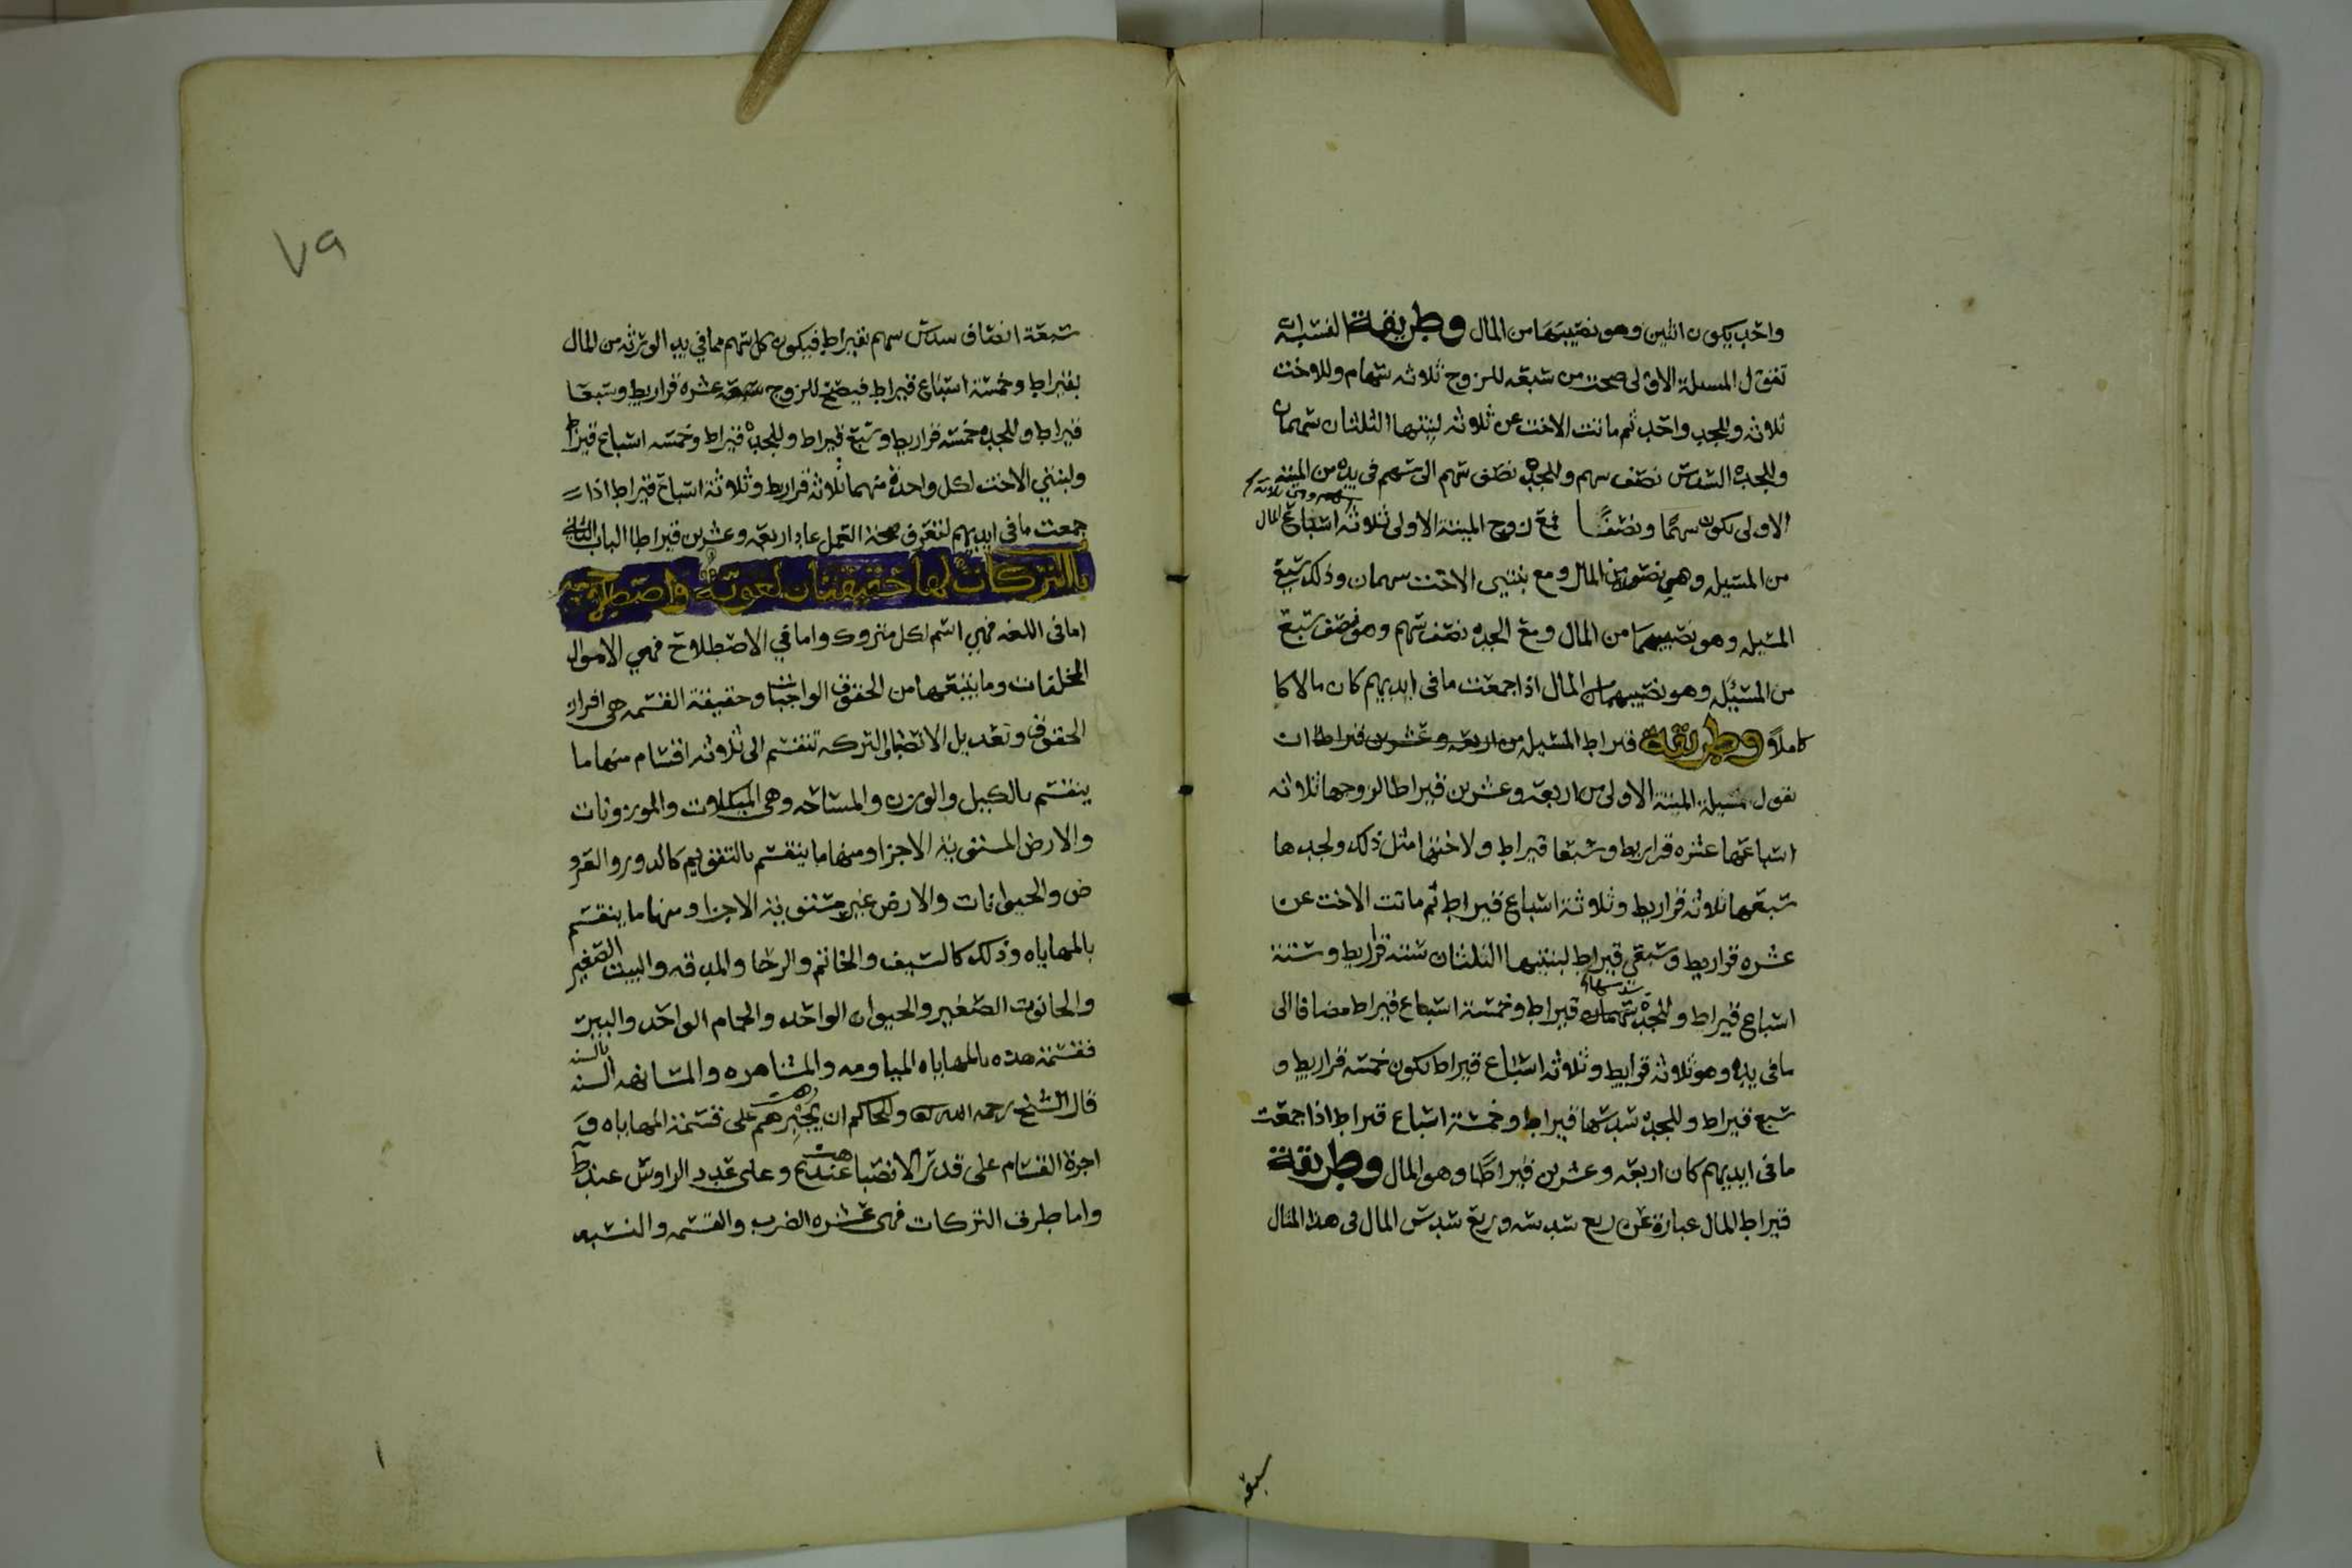 واحد يكون اثنين وهو نصيبها من المال وطريقة النسبة ان
تقول المسيلة الاولى صحت من سبعه للزوج ثلاثه سهام وللاخت
ثلاثه وللجد واحد ثم ماتت الاخت عن ثلاثه لبنتيها الثلثان سهمان
وللجده السدس نصف سهم وللجد نصف سهم الى سهم في يده من الميته
الاولى يكون سهمًا ونصفًا فمع زوج الميتة الاولى ثلاثة اسباع المال
من المسيله وهي نصيبه من المال ومع بنتي الاخت سهمان وذلك سبع
المسيله وهو نصيبهما من المال ومع الجده نصف سهم وهو نصف سبع
من المسئيله وهو نصيبها من المال اذا جمعت ما في ايديهم كان مالا كا
كاملاً وطريقة قيراط المسيله من اربعه وعشرين قيراطًا ان
تقول مسيلة الميتة الاولى من اربعه وعشرين قيراطا لزوجها ثلاثه
اسباعها عشره قراريط وسبعا قيراط ولاختها مثل ذلك ولجدها
سبعها ثلاثه قراريط وثلاثة اسباع قيراط ثم ماتت الاخت عن
عشره قراريط وسبعي قيراط لبنتيها الثلثان ستة قراريط وستة
اسباع قيراط وللجد سدسها قيراط وخمسة اسباع قيراط مضافا الى
ما في يده وهو ثلاثه قراريط وثلاثه اسباع قيراط يكون خمسه قراريط و
سبع قيراط وللجده سدسها قيراط وخمسة اسباع قيراط اذا جمعت
ما في ايديهم كان اربعه وعشرين قيراطًا وهو المال وطريقة
قيراط المال عبارة عن ربع سدسه وربع سدس المال في هذا المثال
سبعه
٧٩
سبعة انصاف سدس سهم بقيراط فيكون كل سهم مما في يد الورثه من المال
بقيراط وخمسة اسباع قيراط فيصح للزوج عشره قراريط وسبعا
قيراط وللجد خمسه قراريط وسبع قيراط وللجده قيراط وخمسه اسباع قيراط
ولبنتي الاخت لكل واحدة منهما ثلاثه قراريط وثلاثة اسباع قيراط اذا
جمعت ما في ايديهم لتعرف صحة العمل عاد اربعه وعشرين قيراطا الباب الثاني
بالتركات لها حقيقتان لغوية واصطلاحية
اما في اللغه فهي اسم لكل متروك واما في الاصطلاح فهي الاموال
المخلفات وما يتبعها من الحقوق الواجبات وحقيقة القسمه هي افراز
الحقوق وتعديل الانصبا والتركه تنقسم الى ثلاثه اقسام منها ما
ينقسم بالكيل والوزن والمساحه وهي المكيلات والموزونات
والارض المستوية الاجزا ومنها ما ينقسم بالتقويم كالدور والعرو
ض والحيوانات والارض غير مستوية الاجزا ومنها ما ينقسم
بالمهاياه وذلك كالسيف والخاتم والرحا والمدقه والبيت الصغير
والحانوت الصغير والحيوان الواحد والحمام الواحد والبير
فقسمة هذه بالمهاياه المياومه والمشاهره والمسانهه السنه بالسنه
قال الشيخ رحمه الله وللحاكم ان يجبرهم على قسمة المهاياه و
اجرة القسام على قدر الانصبا عند وعلى عدد الراوس عند ط
واما طرق التركات فهي عشره الضرب والقسمه والنسبه